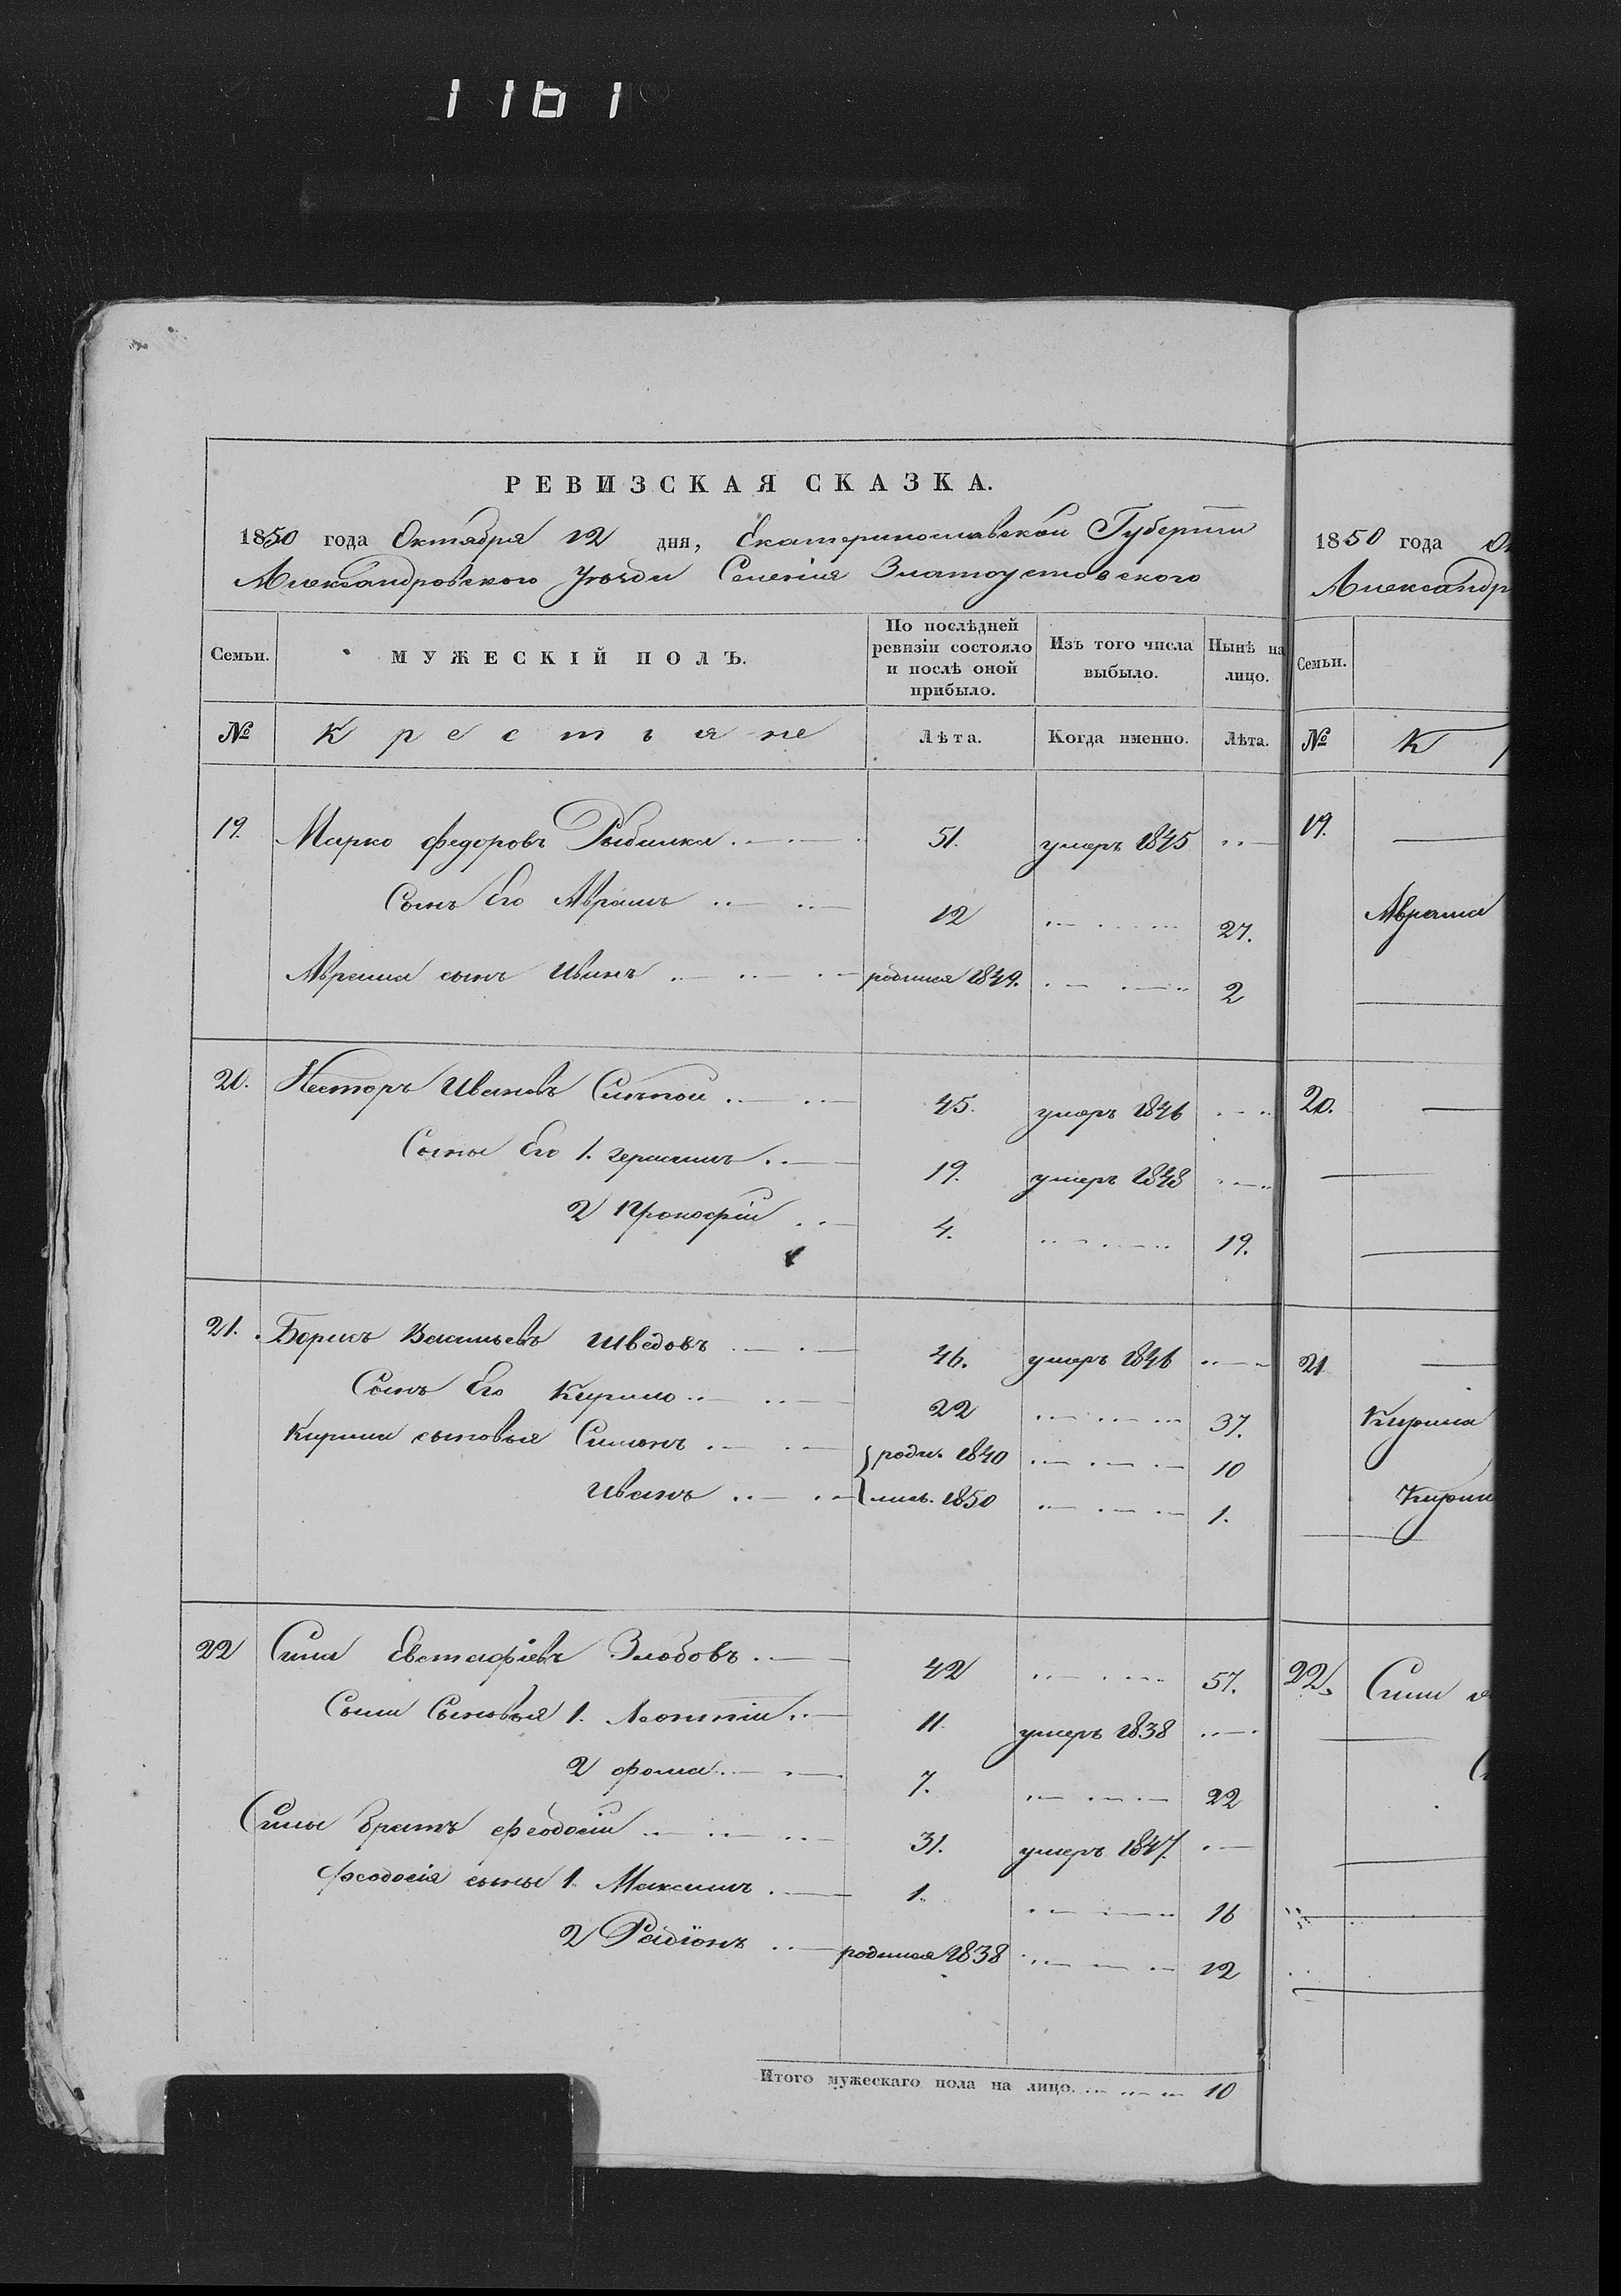 1161
РЕВИЗСКАЯ СКАЗКА.
1850 года Октября 12 дня, Екатеринославской Губерніи
Александровского Уѣзда Селенія Златоустовского
Семьи. МУЖЕСКІЙ ПОЛЪ. По послѣдней ревизіи состояло и послѣ оной прибыло. Изъ того числа выбыло. Нынѣ на лицо.
№ Крестьяне Лѣта. Когда именно. Лѣта.
19. Марко Федоровъ Рыбалка 51. умеръ 1845
Сынъ Его Абрамъ 12 27.
Абрама сынъ Иванъ родился 1849. 2
20. Несторъ Ивановъ 45. умеръ 1846
Сыны Его 1. Герасимъ 19. умеръ 1848
2 Прокофій 4. 19.
21. Борисъ Васильевъ Шведовъ 46. умеръ 1846
Сынъ Его Кирило 22 37.
Кирила сыновья Симонъ роди. 1840 10
Иванъ лись. 1850 1.
22 Сила Евстафіевъ Злобовъ 42 57.
Силы Сыновья 1. Леонтій 11. умеръ 1838
2 Фома 7. 22
Силы Братъ Феодосій 31. умеръ 1847.
Феодосія сыны 1. Максимъ 1. 16
2 Радіонъ родился 1838 12
Итого мужескаго пола на лицо. 10
1850 года
Александр
Семьи.
№ К
19.
Абрама
20.
21
Кирила
Кирил
22. Силы